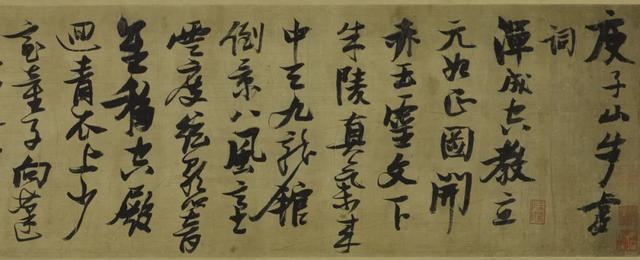 庾子山步虛
詞
渾成空教立
元始正圖開
赤玉靈文下
朱陵真氣來
中天九龍館
倒景八風臺
雲度絃歌響
星移空殿
迴青衣上少
室童子向蓬